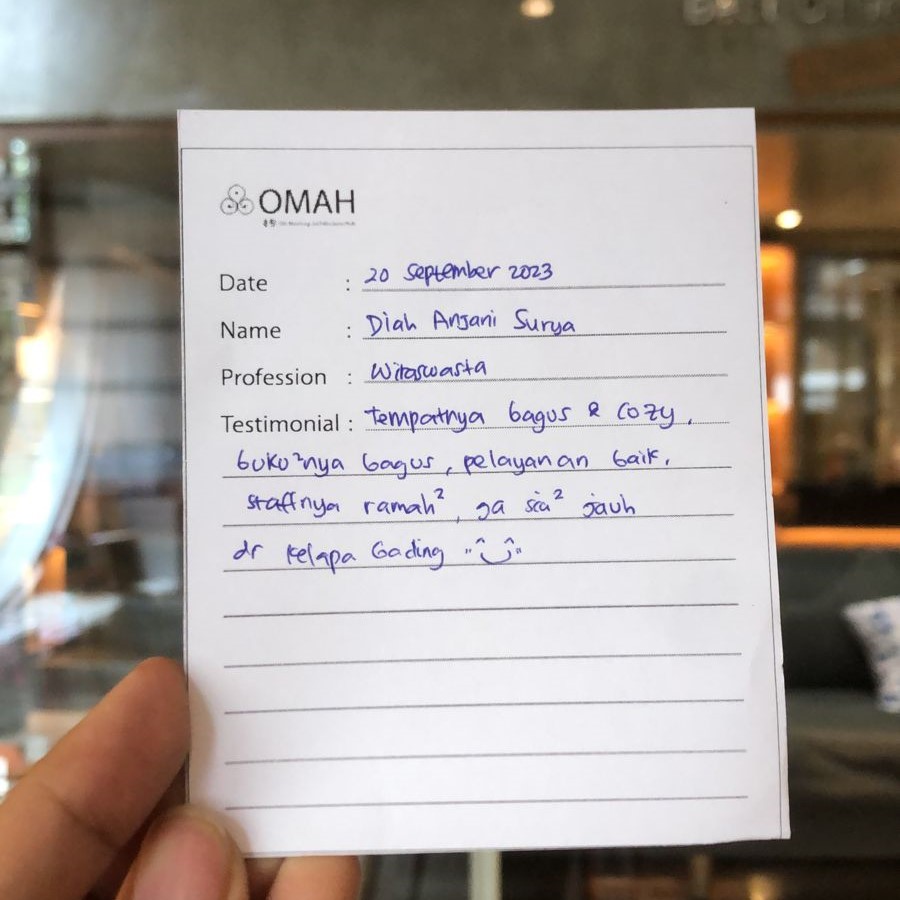 OMAH
Date : 20 September 2023
Name : Diah Anjani Surya
Profession : Wiraswasta
Testimonial : tempatnya bagus & cozy,
buku²nya bagus, pelayanan baik,
staffnya ramah², ga sia² jauh
dr Kelapa Gading "^‿^"